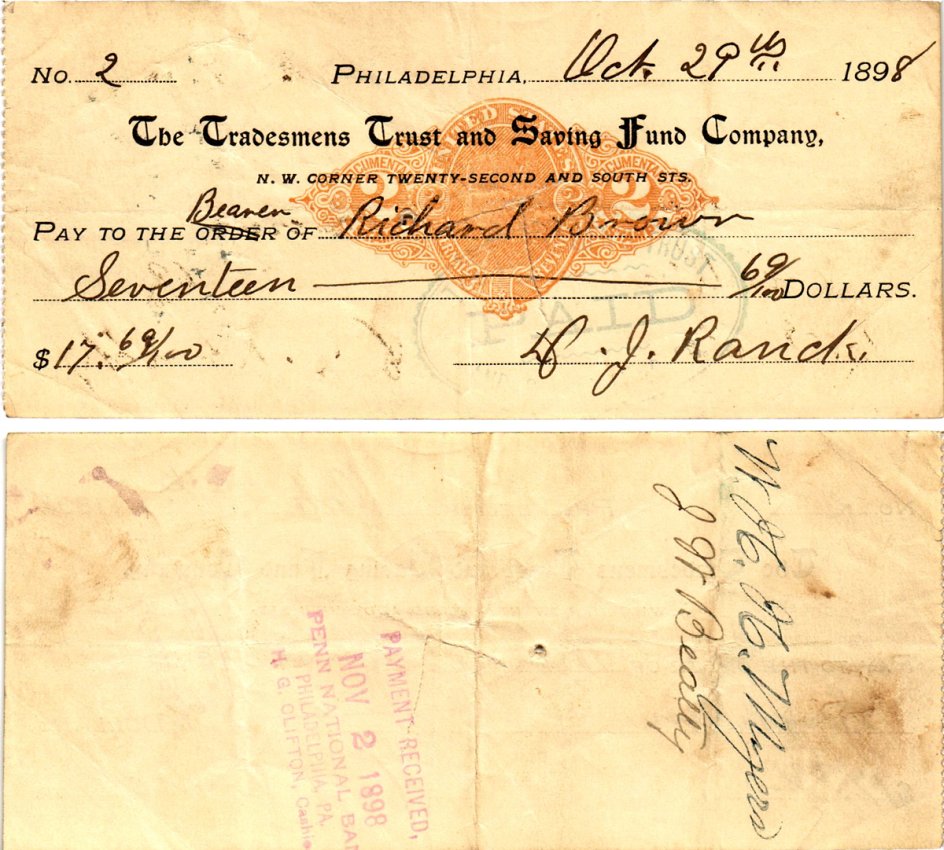 No. 2 PHILADELPHIA, Oct. 29th 1898
UNITED STATES
The Tradesmens Trust and Saving Fund Company,
DOCUMENTARY
N. W. CORNER TWENTY-SECOND AND SOUTH STS.
2 2
Bearer
PAY TO THE ORDER OF Richard Brown
TRUST
Seventeen 69/100 DOLLARS.
PAID
$17. 69/100 J. Ranck.
W. H. H. Myers
J W Beatty
PAYMENT RECEIVED,
NOV 2 1898
PENN NATIONAL BAN
PHILADELPHIA, PA.
H. G. CLIFTON, Cashie